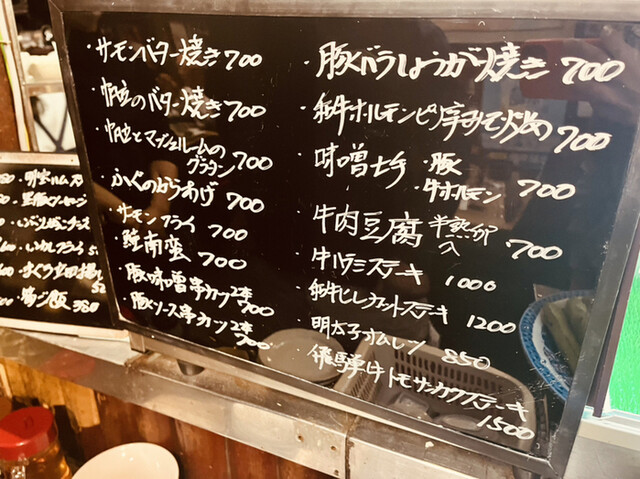 ・サーモンバター焼き 700
・帆立のバター焼き 700
・帆立とマッシュルームの
グラタン 700
・ふぐのからあげ 700
・サーモンフライ 700
・鯵南蛮 700
・豚味噌串カツ2本 700
・豚ソース串カツ2本 700
・豚バラしょうが焼き 700
・和牛ホルモンピリ辛みそ炒め 700
・味噌モチ・豚
・牛ホルモン 700
・牛肉豆腐 半熟卵入 700
・牛ハラミステーキ 1000
・和牛ヒレカットステーキ 1200
・明太子オムレツ 850
・飛騨牛トモサンカクステーキ
1500
明宝ハム
いかフライ
飯 350